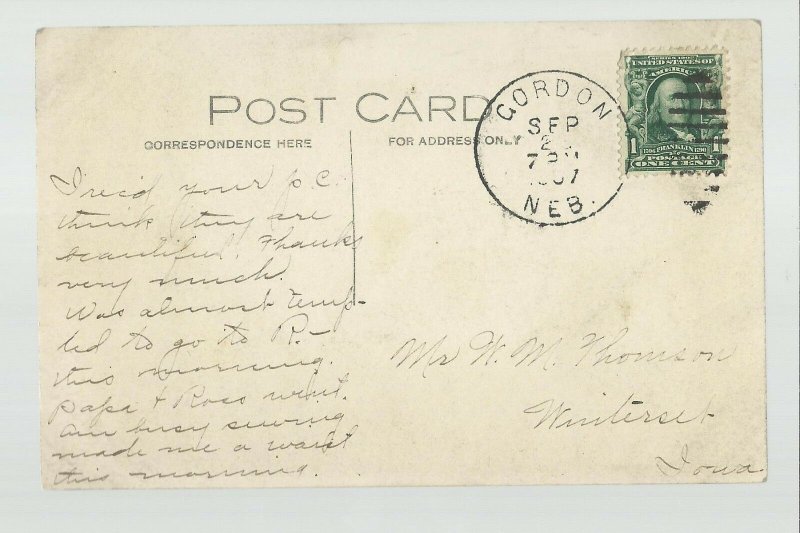 POST CARD
CORRESPONDENCE HERE
FOR ADDRESS ONLY
GORDON
SEP
2
7 PM
1907
NEB.
SERIES 1902
UNITED STATES OF
AMERICA
1 FRANKLIN 1
POSTAGE
ONE CENT
I rec'd your p.c.
think they are
beautiful. Thanks
very much.
Was almost temp-
ted to go to R.-
this morning.
papa + Ross went.
am busy sewing
made me a waist
this morning.
Mr W. M. Thomson
Winterset
Iowa